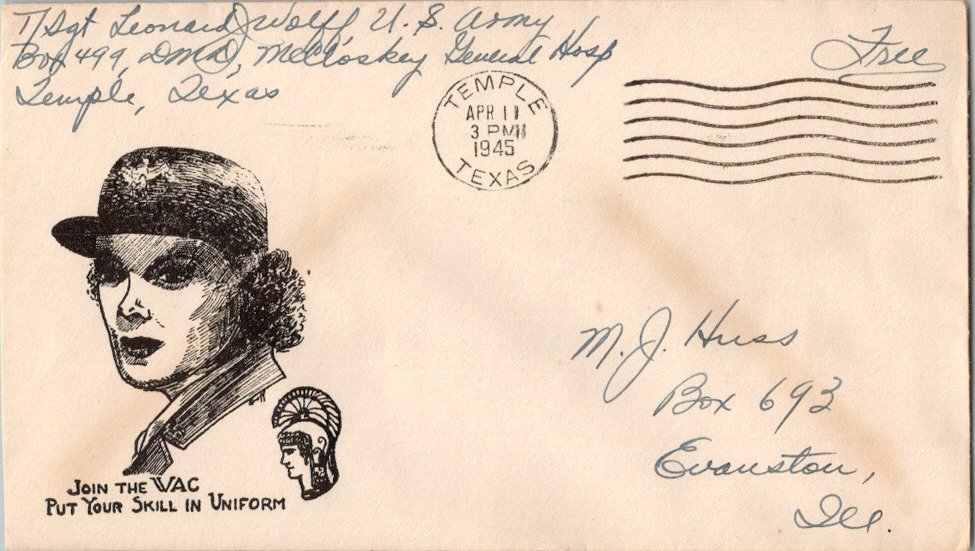 T/Sgt Leonard J Wolff, U. S. Army
Box 499, DMD, McCloskey General Hosp
Temple, Texas
Free
TEMPLE
APR 11
3 PM
1945
TEXAS
M. J. Huss
Box 693
Evanston,
Ill.
JOIN THE WAC
PUT YOUR SKILL IN UNIFORM